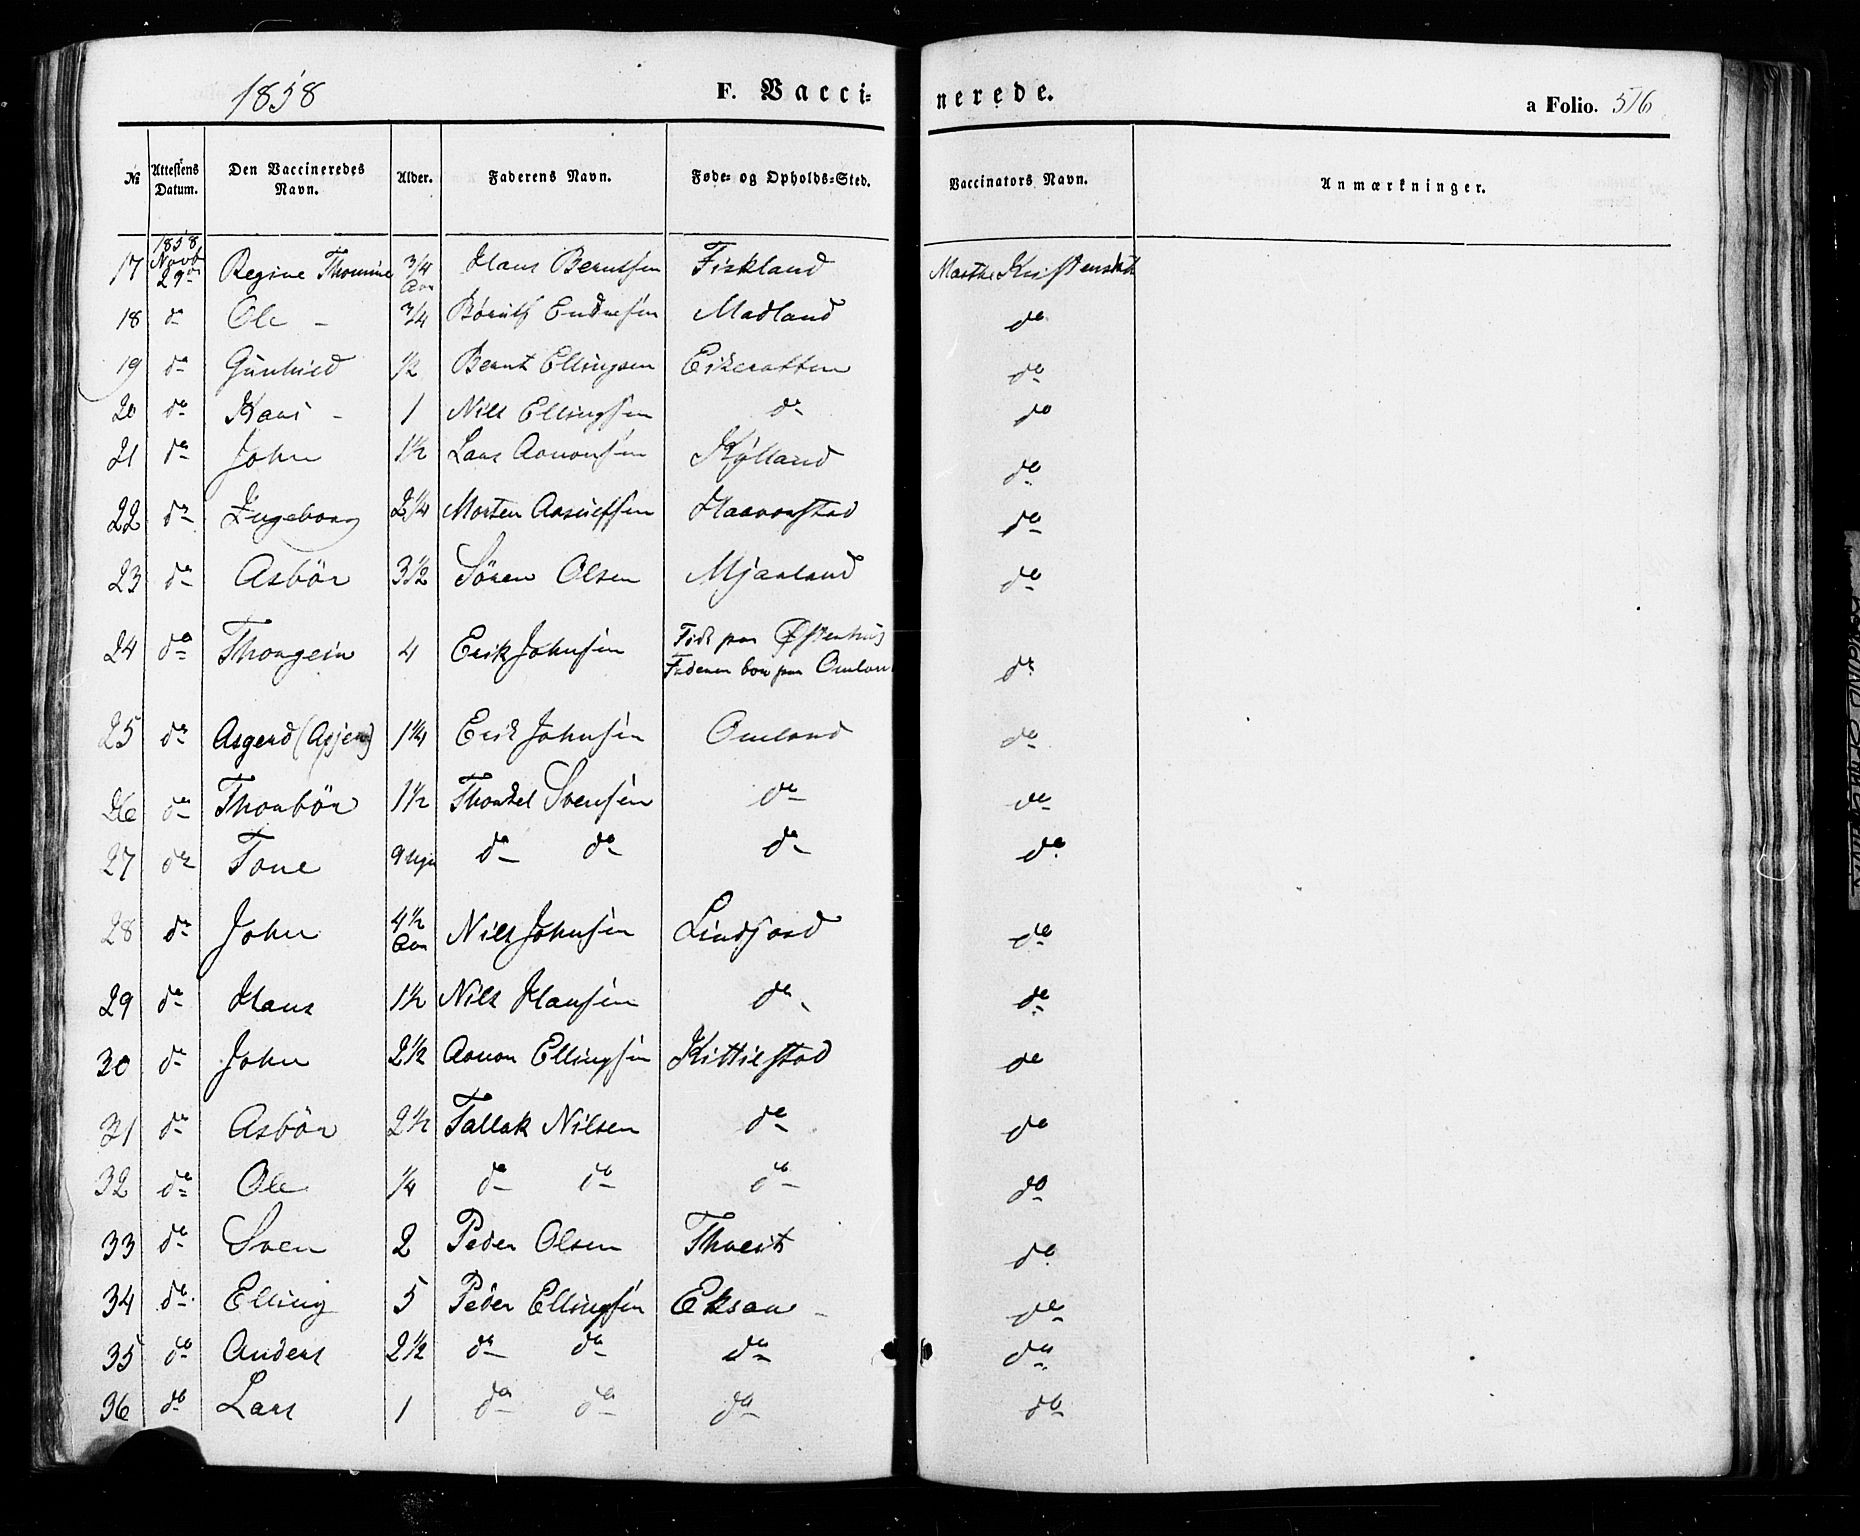 1858 F. Vacci= nerede. a Folio. 516
№ Attestens Datum. Den Vaccineredes Navn. Alder. Faderens Navn. Føde- og Opholds-Sted. Vaccinators Navn. Anmærkninger.
17 1858 Novb 29de Regine Thomine 3/4 Aar Hans Berntsen Fiskland Marthe
18 do Ole - 3/4 Madland do
19 do Gunhild 1/2 Bernt Ellingsen Eikeratten do
20 do Hans - 1 Nils Ellingsen do do
21 do John 1 1/2 Lars Aanonsen Kylland do
22 do Ingeborg 2 1/4 Morten Haavorstad do
23 do Asbör 3 1/2 Sören Olsen Mjaaland do
24 do Thorgein 4 Erik Johnsen Födt paa Østenhus
Faderen bor paa Omland do
25 do Asgerd (Asjer) 1 1/4 Erik Johnsen Omland do
26 do Thorbör 1 1/2 Thorkel Svensen do do
27 do Tone 9 Ugr do do do do
28 do John 4 1/2 Aar Nils Johnsen Lindjord do
29 do Hans 1 1/2 Nils Hansen do do
30 do John 2 1/2 Aanon Ellingsen Kittilstad do
31 do Asbör 2 1/2 Tallak Nilsen do do
32 do Ole 1/4 do do do do
33 do Sven 2 Peder Olsen Thveit do
34 do Elling 5 Peder Ellingsen Eksaae - do
35 do Anders 2 1/2 do do do do
36 do Lars 1 do do do do